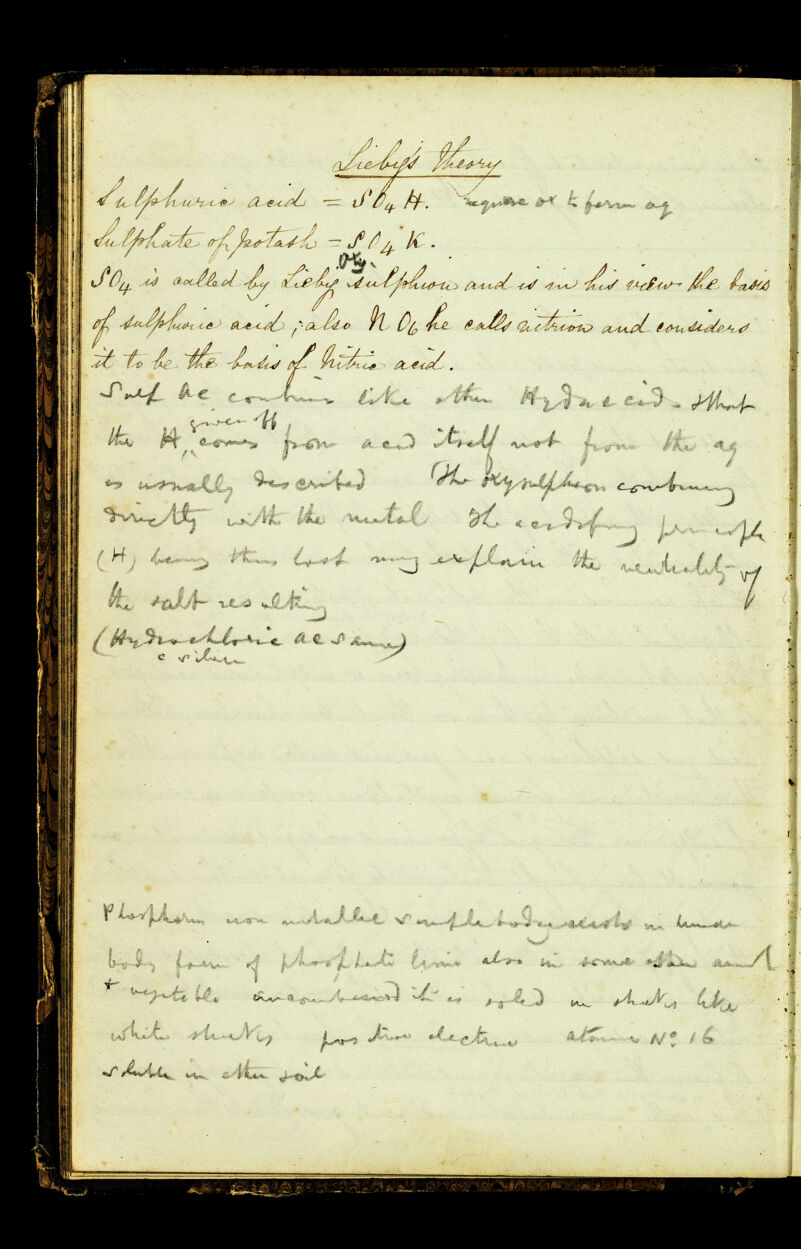 Lieby's Theory
Sulphuric acid = SO4 H. require ox to form aq
Sulphate of potash = SO4 K.
Oxy.
SO4 is called by Lieby sulphion and is in his view the basis
of sulphuric acid; also NO6 he calls nitrion and considers
it to be the basis of Nitric acid.
Sulf ac combines like other Hydracids that
given off
the H, comes from acid itself not from the aq
as usually described The oxysulphion combining
directly with the metal The acidifying principle
(H) being thus lost may explain the neutrality of
the salt resulting
(Hydrochloric ac same)
Phosphorus non metallic simple body exists in human
body form of phosphate lime also in some other
+ vegetable uncombined it is solid in sticks like
white sticks positive electric atomic No 16
soluble in ether & oil